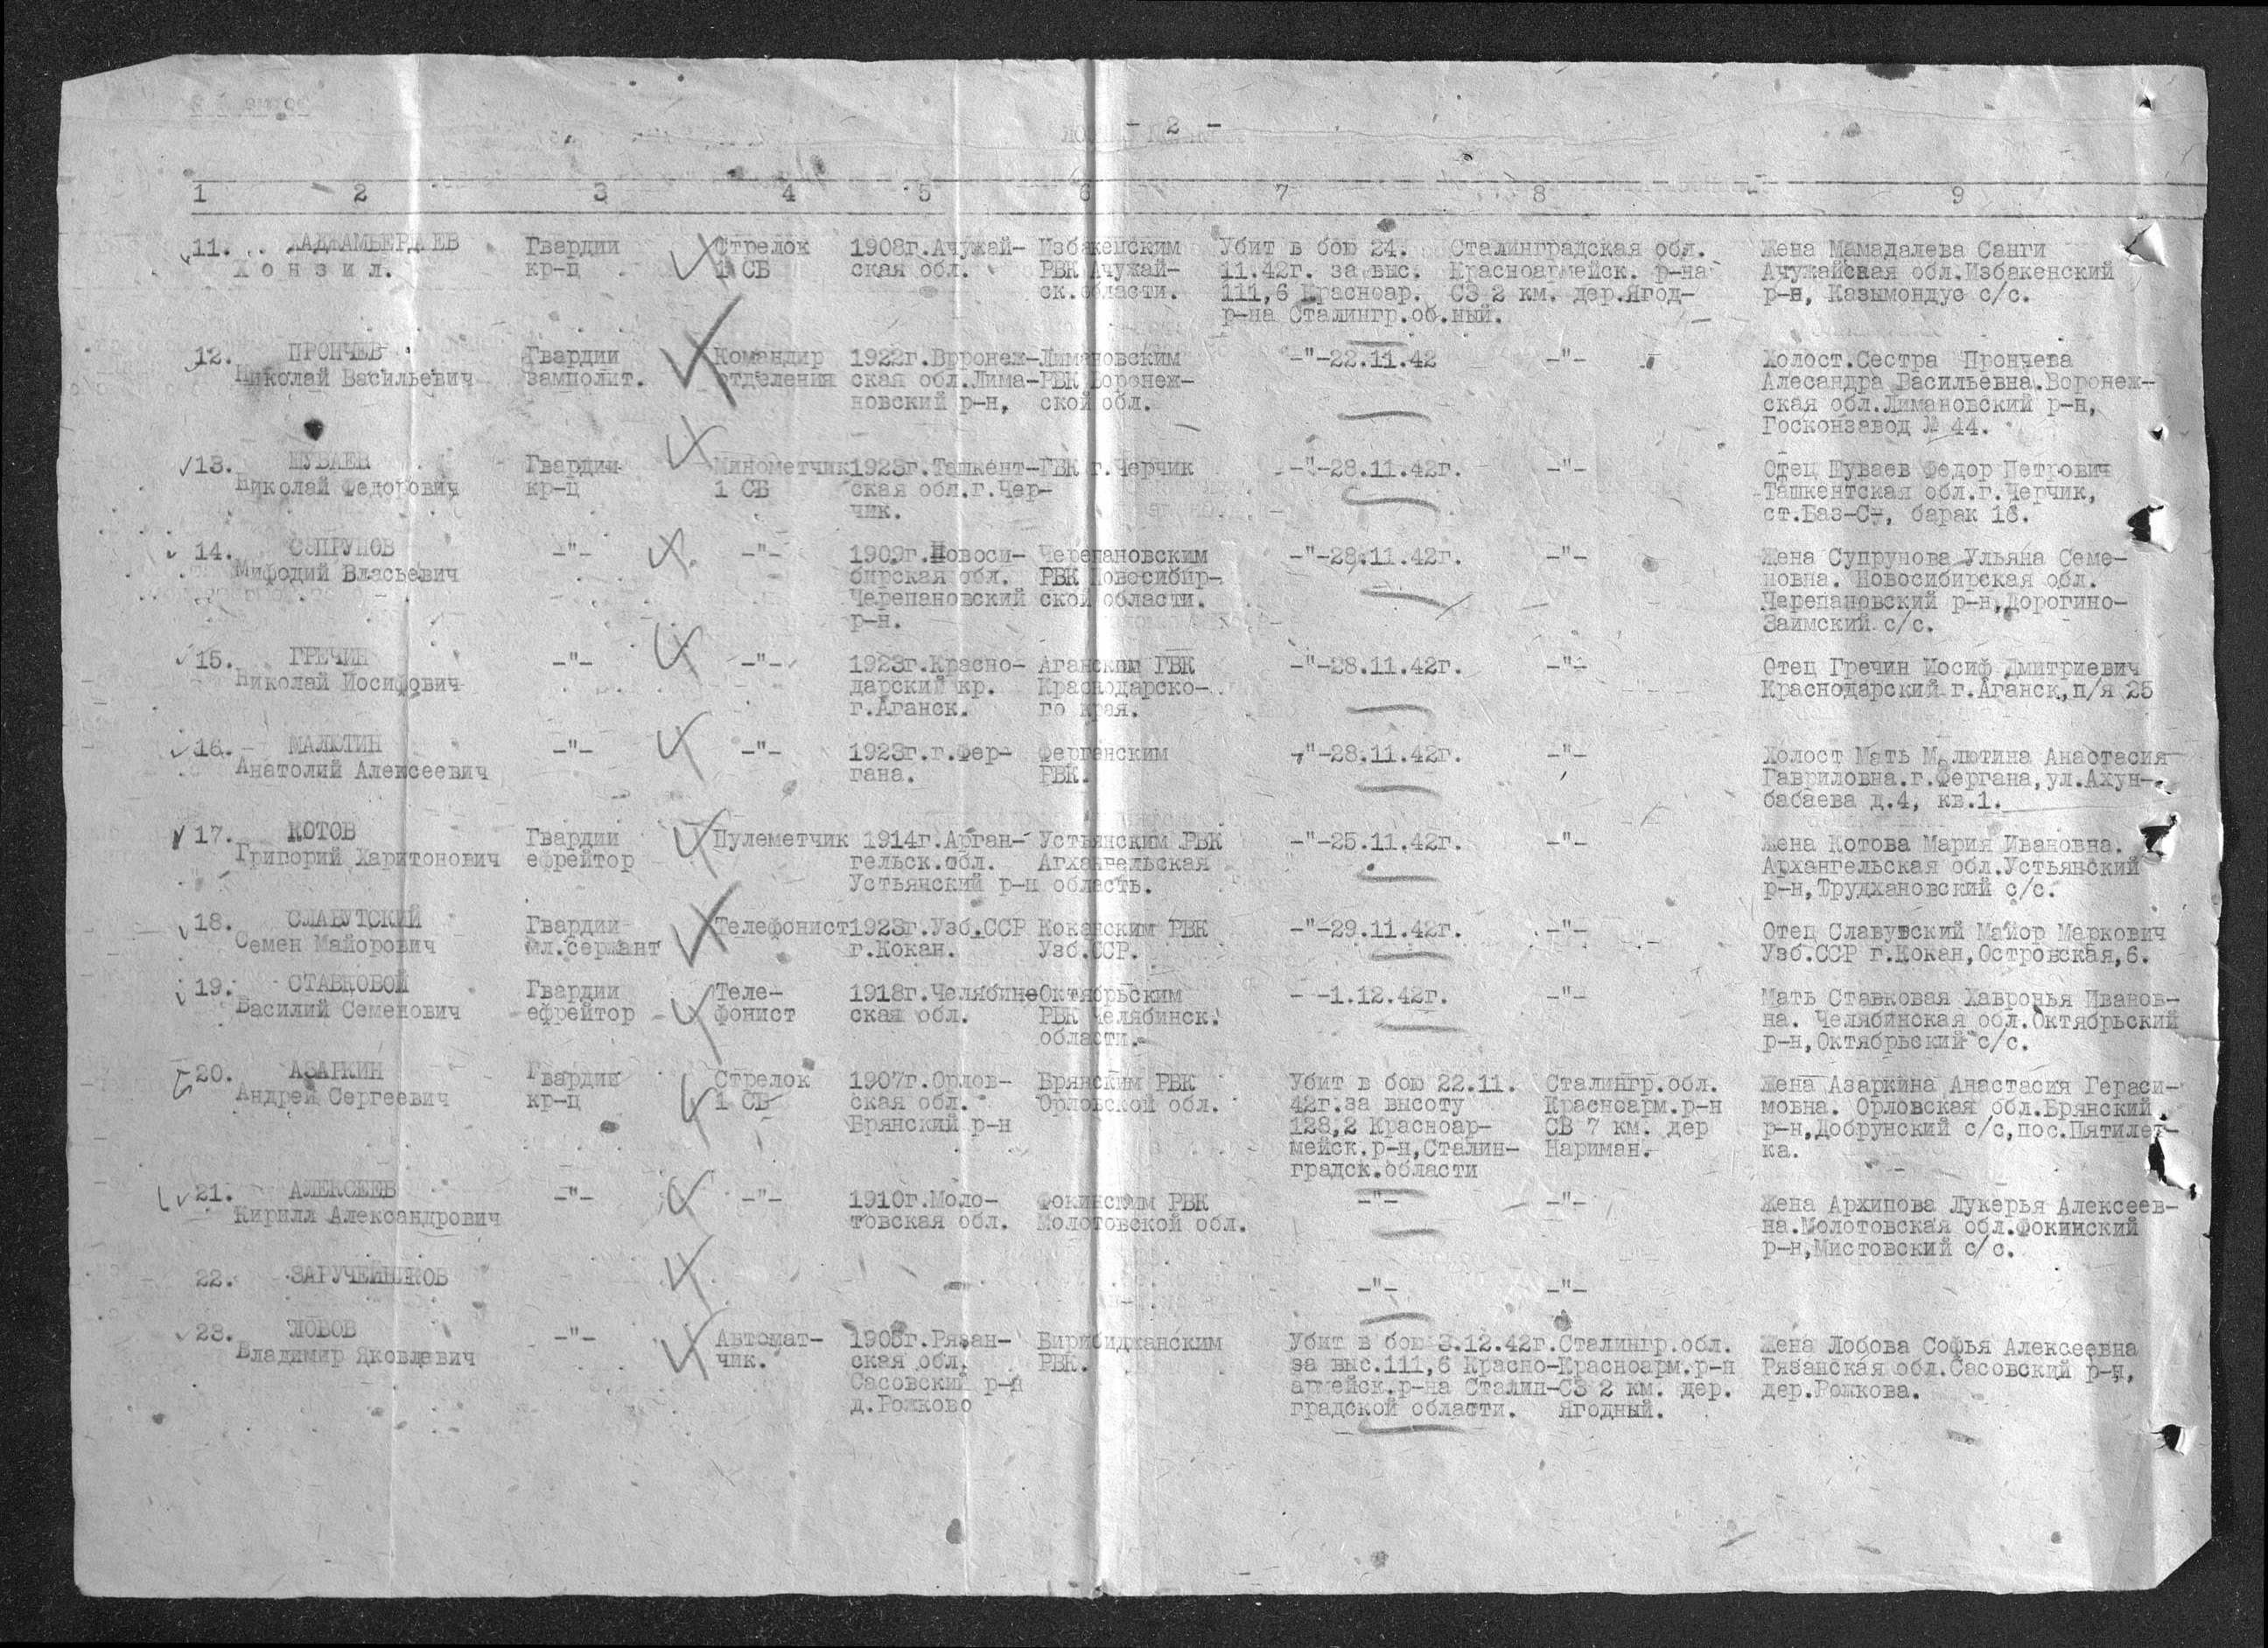 - 2 -
1 2 3 4 5 6 7 8 9
11. ХАДЖАМБЕРДАЕВ Гвардии Стрелок 1908г.Ачужай- Избакенским Убит в бою 24. Сталинградская обл. Жена Мамадалева Санги
Хонзил. кр-ц 1 СБ ская обл. РВК Ачужай- 11.42г. за выс. Красноармейск. р-на Ачужайская обл.Избакенский
ск.области. 111,6 Красноар. СЗ 2 км. дер.Ягод- р-н, Казымондус с/с.
р-на Сталингр.об.ный.
12. ПРОНЧЕВ Гвардии Командир 1922г.Воронеж- Лимановским -"-22.11.42 -"- Холост.Сестра Прончева
Николай Васильевич замполит. отделения ская обл.Лима- РВК Воронеж- Алесандра Васильевна.Воронеж-
новский р-н, ской обл. ская обл.Лимановский р-н,
Госконзавод № 44.
13. ШУВАЕВ Гвардии Минометчик 1923г.Ташкент- ГВК г.Черчик -"-28.11.42г. -"- Отец Шуваев Федор Петрович
Николай Федорович кр-ц 1 СБ ская обл.г.Чер- Ташкентская обл.г.Черчик,
чик. ст.Баз-Су, барак 16.
14. СУПРУНОВ -"- -"- 1909г.Новоси- Черепановским -"-28.11.42г. -"- Жена Супрунова Ульяна Семе-
Мифодий Власьевич бирская обл. РВК Новосибир- новна. Новосибирская обл.
Черепановский ской области. Черепановский р-н,Дорогино-
р-н. Заимский с/с.
15. ГРЕЧИН -"- -"- 1923г.Красно- Аганским ГВК -"-28.11.42г. -"- Отец Гречин Иосиф Дмитриевич
Николай Иосифович дарский кр. Краснодарско- Краснодарский г.Аганск,п/я 25
г.Аганск. го края.
16. МАЛЮТИН -"- -"- 1923г.г.Фер- Ферганским -"-28.11.42г. -"- Холост Мать Малютина Анастасия
Анатолий Алексеевич гана. РВК. Гавриловна.г.Фергана,ул.Ахун-
бабаева д.4, кв.1.
17. КОТОВ Гвардии Пулеметчик 1914г.Арган- Устьянским РВК -"-25.11.42г. -"- Жена Котова Мария Ивановна.
Григорий Харитонович ефрейтор гельск.обл. Агхангельская Архангельская обл.Устьянский
Устьянский р-н область. р-н,Трудхановский с/с.
18. СЛАВУТСКИЙ Гвардии Телефонист 1923г.Узб.ССР Коканским РВК -"-29.11.42г. -"- Отец Славувский Майор Маркович
Семен Майорович мл.сержант г.Кокан. Узб.ССР. Узб.ССР г.Кокан,Островская,6.
19. СТАВКОВОЙ Гвардии Теле- 1918г.Челябинс Октябрьским - -1.12.42г. -"- Мать Ставковая Хавронья Иванов-
Василий Семенович ефрейтор фонист ская обл. РВК Челябинск. на. Челябинская обл.Октябрьский
области. р-н,Октябрьский с/с.
20. АЗАРКИН Гвардии Стрелок 1907г.Орлов- Брянским РВК Убит в бою 22.11. Сталингр.обл. Жена Азаркина Анастасия Гераси-
Андрей Сергеевич кр-ц 1 СБ ская обл. Орловской обл. 42г.за высоту Красноарм.р-н мовна. Орловская обл.Брянский
Брянский р-н 128,2 Красноар- СВ 7 км. дер р-н,Добрунский с/с,пос.Пятилет-
мейск.р-н,Сталин- Нариман. ка.
градск.области
21. АЛЕКСЕЕВ -"- -"- 1910г.Моло- Фокинским РВК -"- -"- Жена Архипова Лукерья Алексеев-
Кирилл Александрович товская обл. Молотовской обл. на.Молотовская обл.Фокинский
р-н,Мистовский с/с.
22. ЗАРУЧЕЙНИКОВ -"- -"-
23. ЛОБОВ -"- Автомат- 1905г.Рязан- Биробиджанским Убит в бою 3.12.42г. Сталингр.обл. Жена Лобова Софья Алексеевна
Владимир Яковлевич чик. ская обл. РВК. за выс.111,6 Красно- Красноарм.р-н Рязанская обл.Сасовский р-н,
Сасовский р-н армейск.р-на Сталин- СЗ 2 км. дер. дер.Рожкова.
д.Рожково градской области. Ягодный.